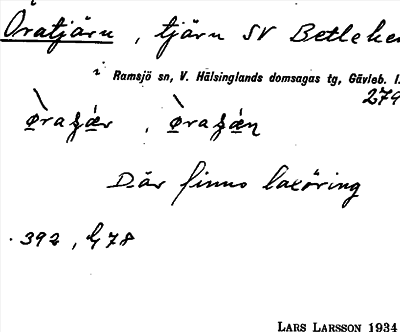 Öratjärn, tjärn SV Betlehem
i Ramsjö sn, V. Hälsinglands domsagas tg, Gävleb. l.
279
Där finns laxöring
392, 478
LARS LARSSON 1934